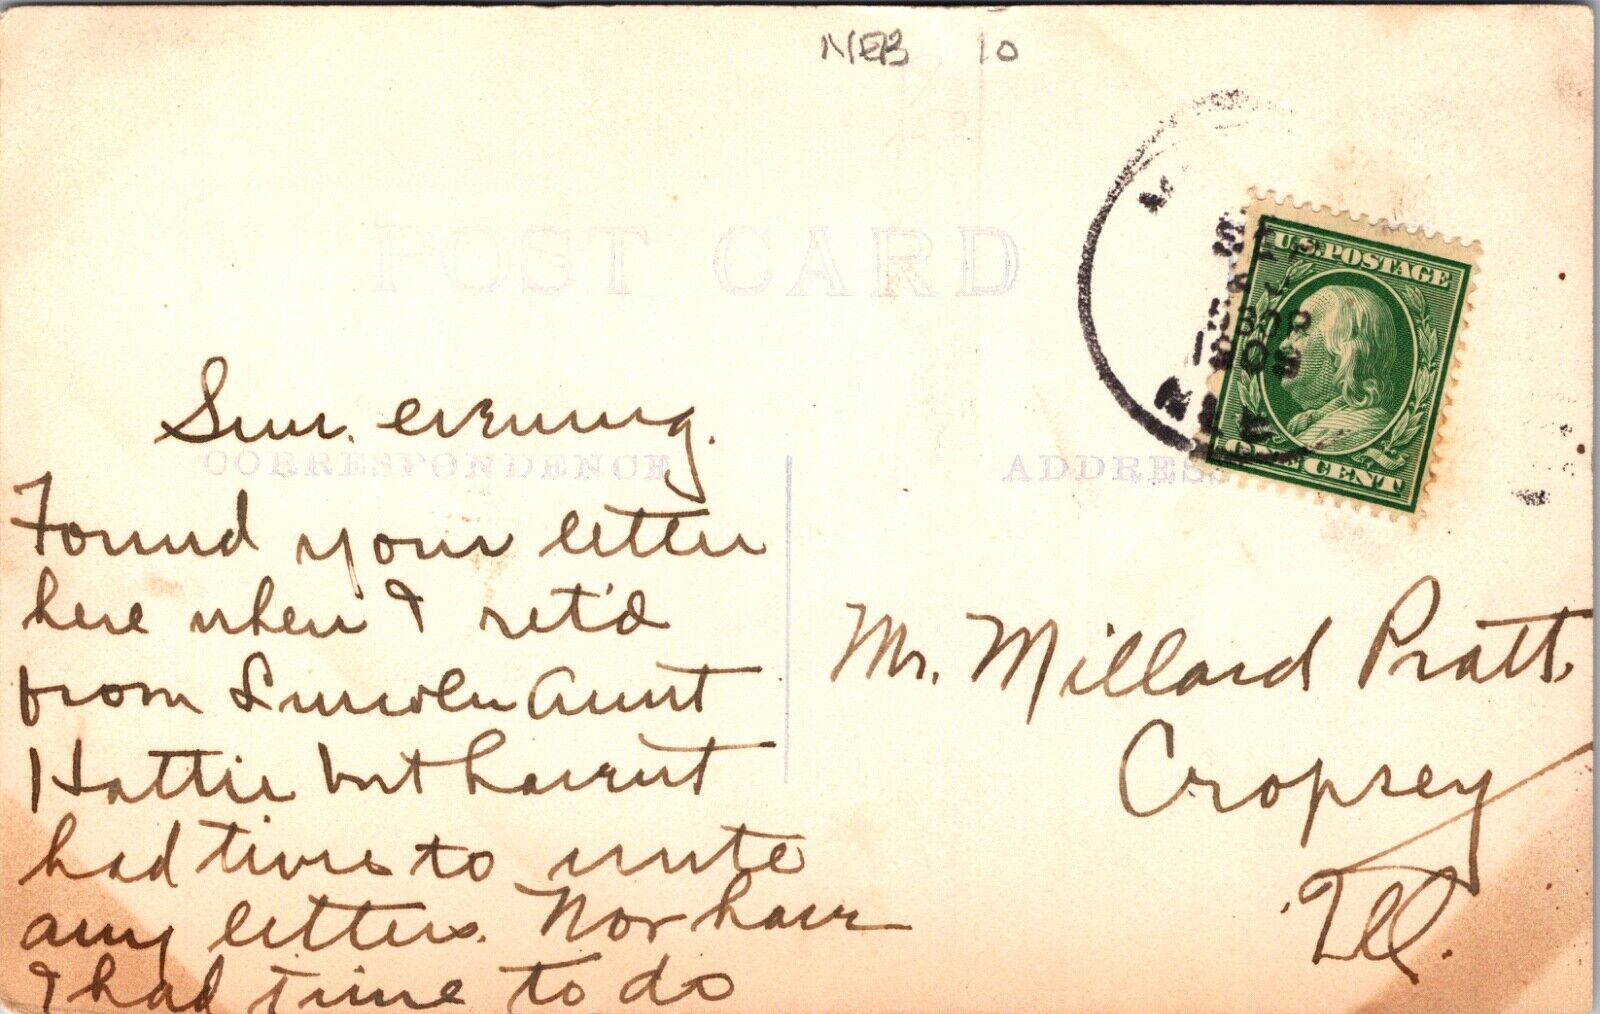 NEB 10
POST CARD
U.S. POSTAGE
ONE CENT
CORRESPONDENCE
ADDRESS
Sun. evening.
Found your letter
here when I ret'd
from Lincoln Aunt
Hattie but havent
had time to write
any letters. Nor have
I had time to do
Mr. Millard Pratt.
Cropsey
Ill.